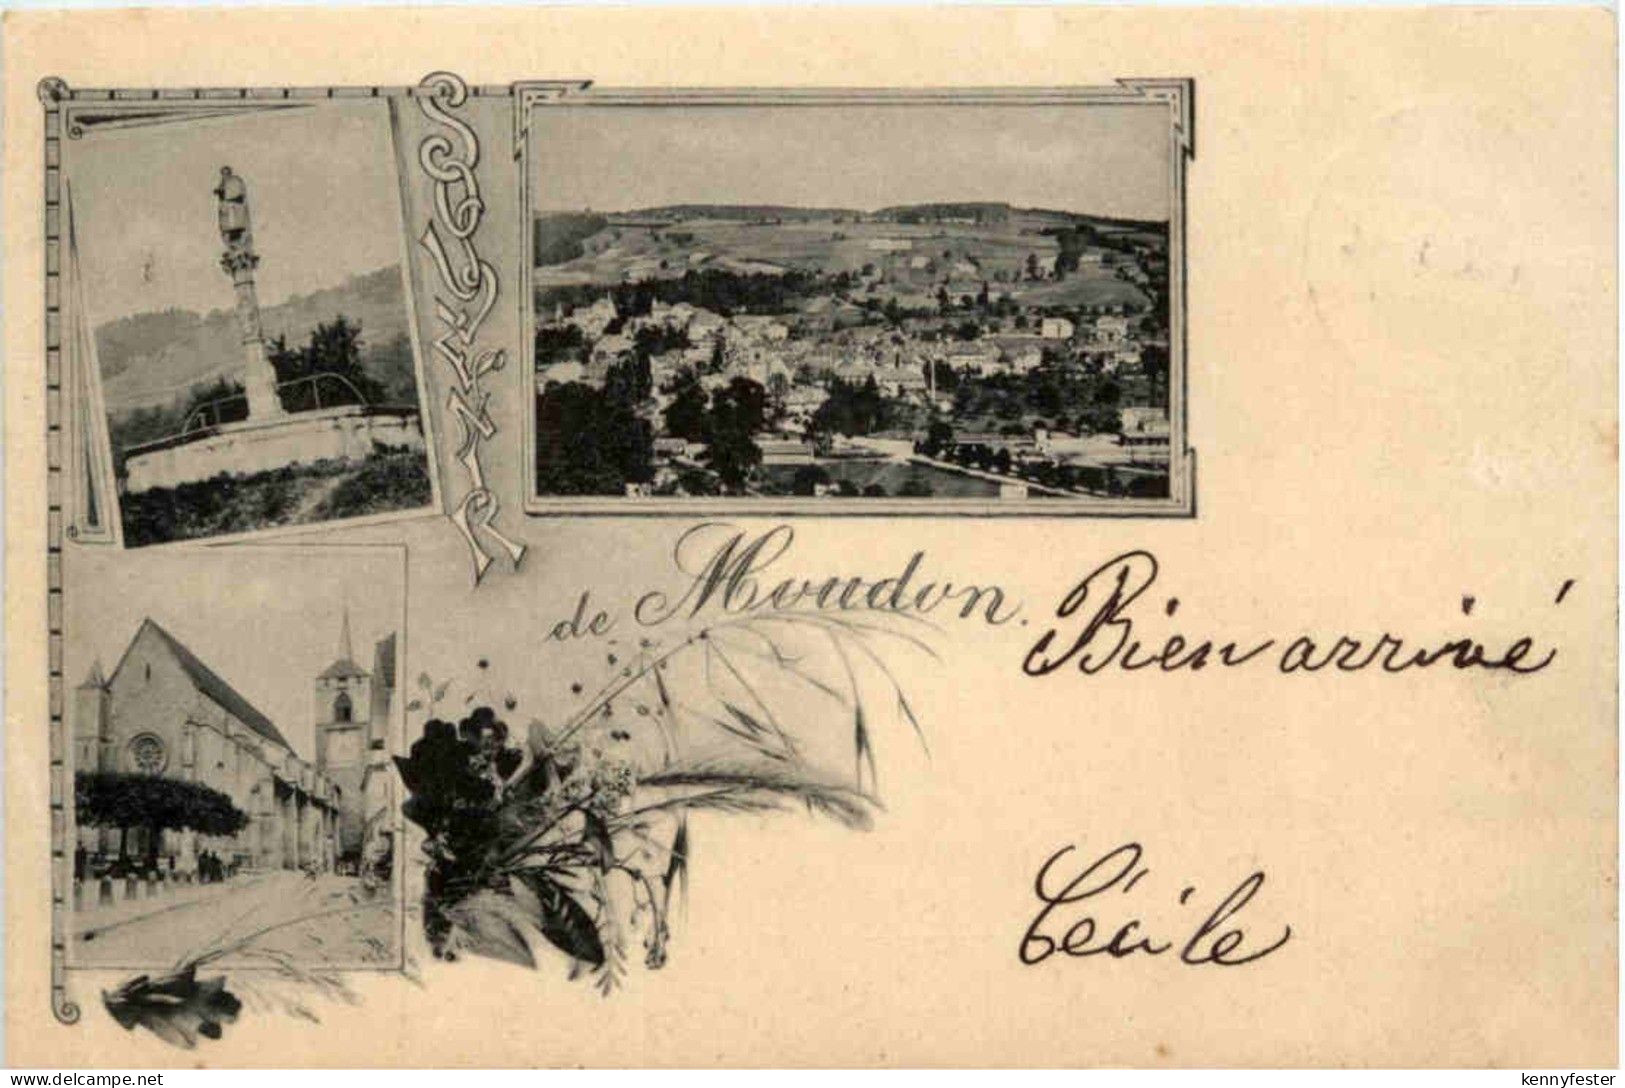 SOUVENIR
de Moudon.
Bien arrivé
Cécile
www.delcampe.net
kennyfester